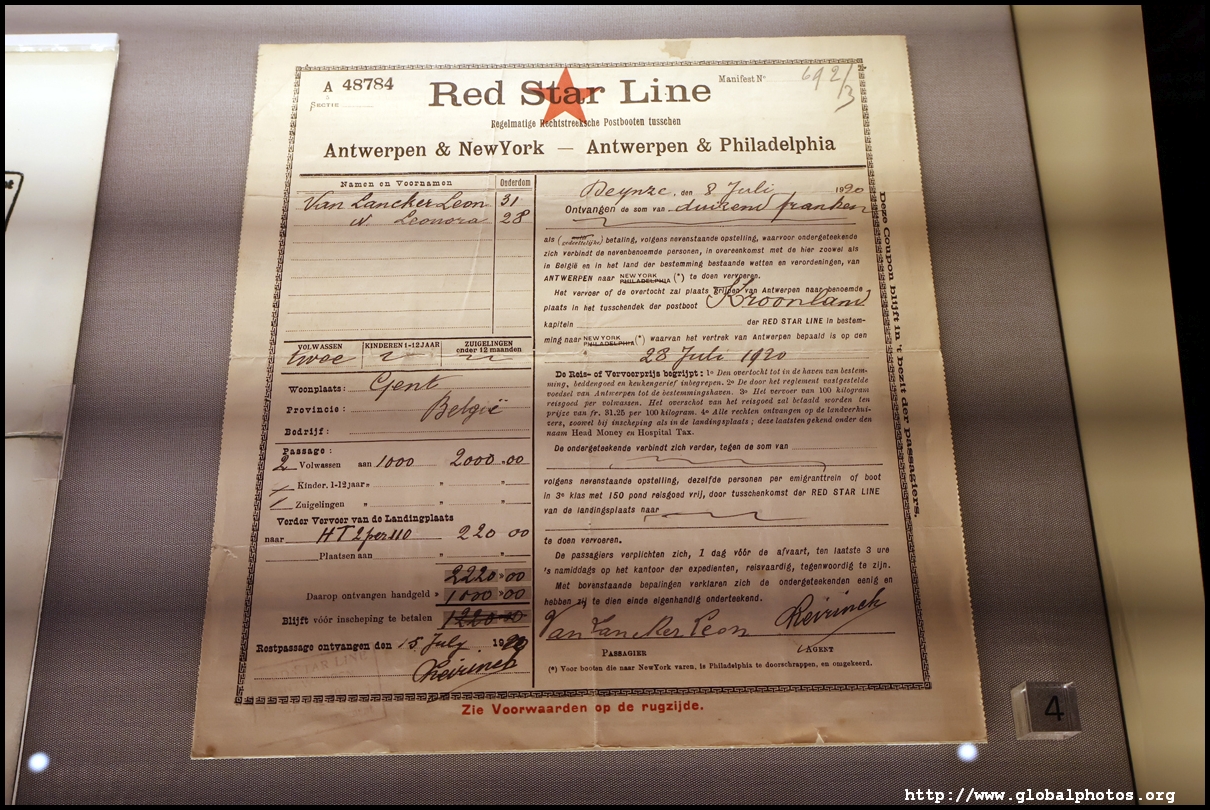 A 48784
SECTIE
Red Star Line
Manifest Nº 692/3
Regelmatige Rechtstreeksche Postbooten tusschen
Antwerpen & NewYork — Antwerpen & Philadelphia
Namen en Voornamen Ouderdom
Van Lancker Leon 31
Leonora 28
VOLWASSEN KINDEREN 1-12 JAAR ZUIGELINGEN
onder 12 maanden
twee
Woonplaats: Gent
Provincie: België
Bedrijf:
Passage:
2 Volwassen aan 1000 2000 »00
Kinder. 1-12 jaar » " "
Zuigelingen " " "
Verder Vervoer van de Landingplaats
naar HT 2 per 110 220 00
Plaatsen aan " "
2220 »00
Daarop ontvangen handgeld » 1000 »00
Blijft vóór inscheping te betalen 1220 00
Restpassage ontvangen den 15 July 1920
Reirinck
Deynze, den 8 Juli 1920
Ontvangen de som van duizend franken
als ( gedeeltelijke) betaling, volgens nevenstaande opstelling, waarvoor ondergeteekende
zich verbindt de nevenbenoemde personen, in overeenkomst met de hier zoowel als
in België en in het land der bestemming bestaande wetten en verordeningen, van
ANTWERPEN naar NEW YORK PHILADELPHIA (*) te doen vervoeren.
Het vervoer of de overtocht zal plaats grijpen van Antwerpen naar benoemde
plaats in het tusschendek der postboot Kroonland
kapitein der RED STAR LINE in bestem-
ming naar NEW YORK PHILADELPHIA (*) waarvan het vertrek van Antwerpen bepaald is op den
28 Juli 1920
De Reis- of Vervoerprijs begrijpt: 1º Den overtocht tot in de haven van bestem-
ming, beddengoed en keukengerief inbegrepen. 2º De door het reglement vastgestelde
voedsel van Antwerpen tot de bestemmingshaven. 3º Het vervoer van 100 kilogram
reisgoed per volwassen. Het overschot van het reisgoed zal betaald worden ten
prijze van fr. 31.25 per 100 kilogram. 4º Alle rechten ontvangen op de landverhui-
zers, zoowel bij inscheping als in de landingsplaats; deze laatsten gekend onder den
naam Head Money en Hospital Tax.
De ondergeteekende verbindt zich verder, tegen de som van
volgens nevenstaande opstelling, dezelfde personen per emigranttrein of boot
in 3e klas met 150 pond reisgoed vrij, door tusschenkomst der RED STAR LINE
van de landingsplaats naar
te doen vervoeren.
De passagiers verplichten zich, 1 dag vóór de afvaart, ten laatste 3 ure
's namiddags op het kantoor der expedienten, reisvaardig, tegenwoordig te zijn.
Met bovenstaande bepalingen verklaren zich de ondergeteekenden eenig en
hebben zij te dien einde eigenhandig onderteekend.
Van Lancker Leon Reirinck
PASSAGIER AGENT
(*) Voor booten die naar NewYork varen, is Philadelphia te doorschrappen, en omgekeerd.
Deze Coupon blijft in 't bezit der passagiers.
Zie Voorwaarden op de rugzijde.
RED STAR LINE
4
http://www.globalphotos.org